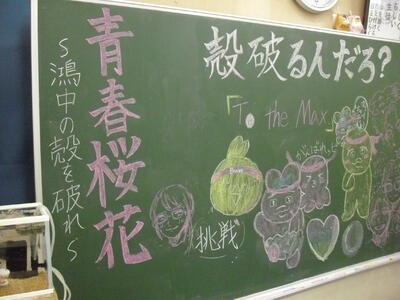 殻破るんだろ?
青春桜花
~鴻中の殻を破れ~
「To the Max」
がんばれっ
(挑戦)